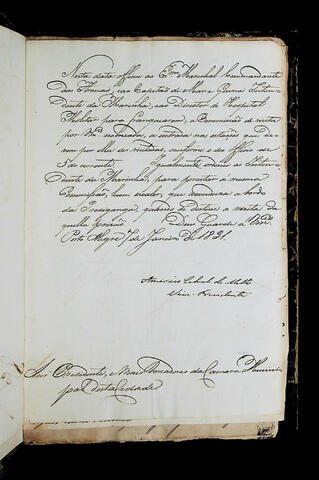 Nesta data officio ao Exmo. Marechal Commandante
das Armas, ao Capitão de Mar e Guerra Inten
dente da Marinha, e ao Director do Hospital
Militar para franquearem, a Commissão de visita
por VSas. nomeada, a entrada nas estações que De
vem por ella ser visitadas, conforme o seo officio de
5 do corrente. Igualmente ordeno ao Inten
dente da Marinha, para prestar á mesma
Commissão, hum escaler, que conduza a bordo
da Presiganga, quando se destine a visita da
quella prisão. Deos Guarde a VSas.
Porto Alegre 7 de Janeiro de 1831.
Americo Cabral de Mello
Vice-Presidente
Snr. Presidente, e mais Vereadores da Camara Munici
pal desta Cidade